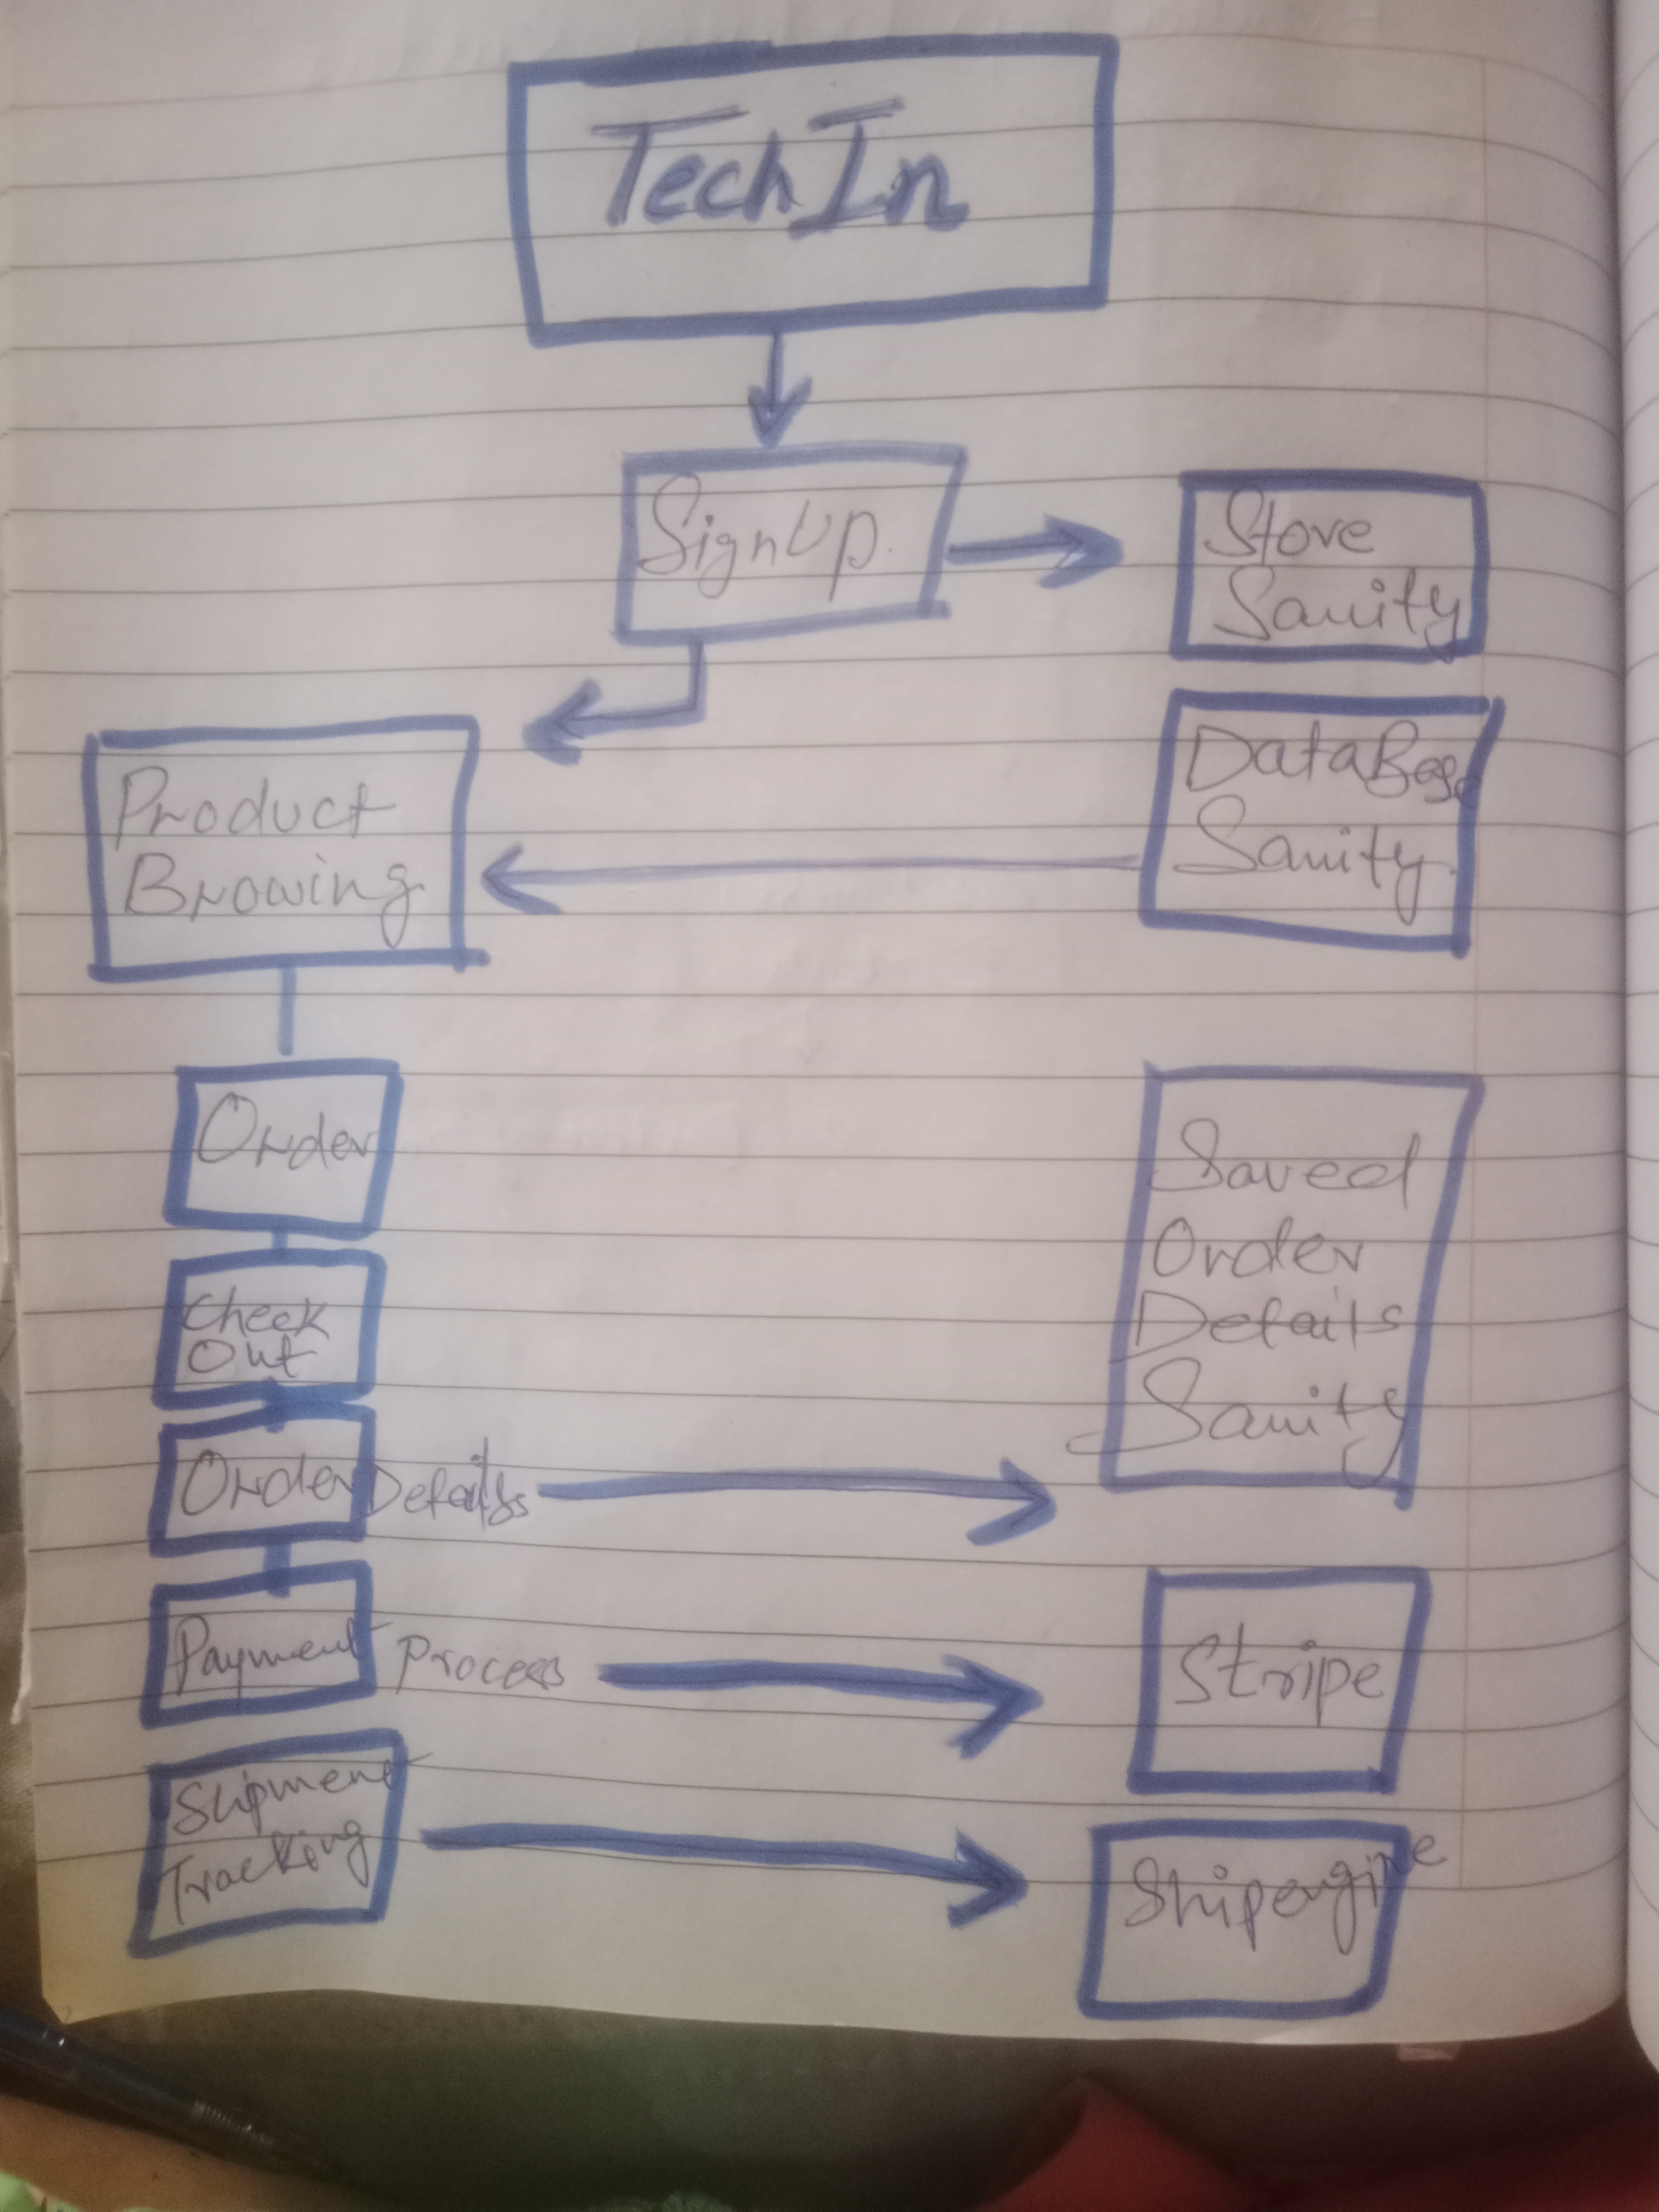 TechIn
SignUp.
Store
Sanity
Product
Browing
DataBase
Sanity
Order
Check
Out
Order Details
Saved
Order
Details
Sanity
Payment Process
Stripe
Shipment
Tracking
Shipengine